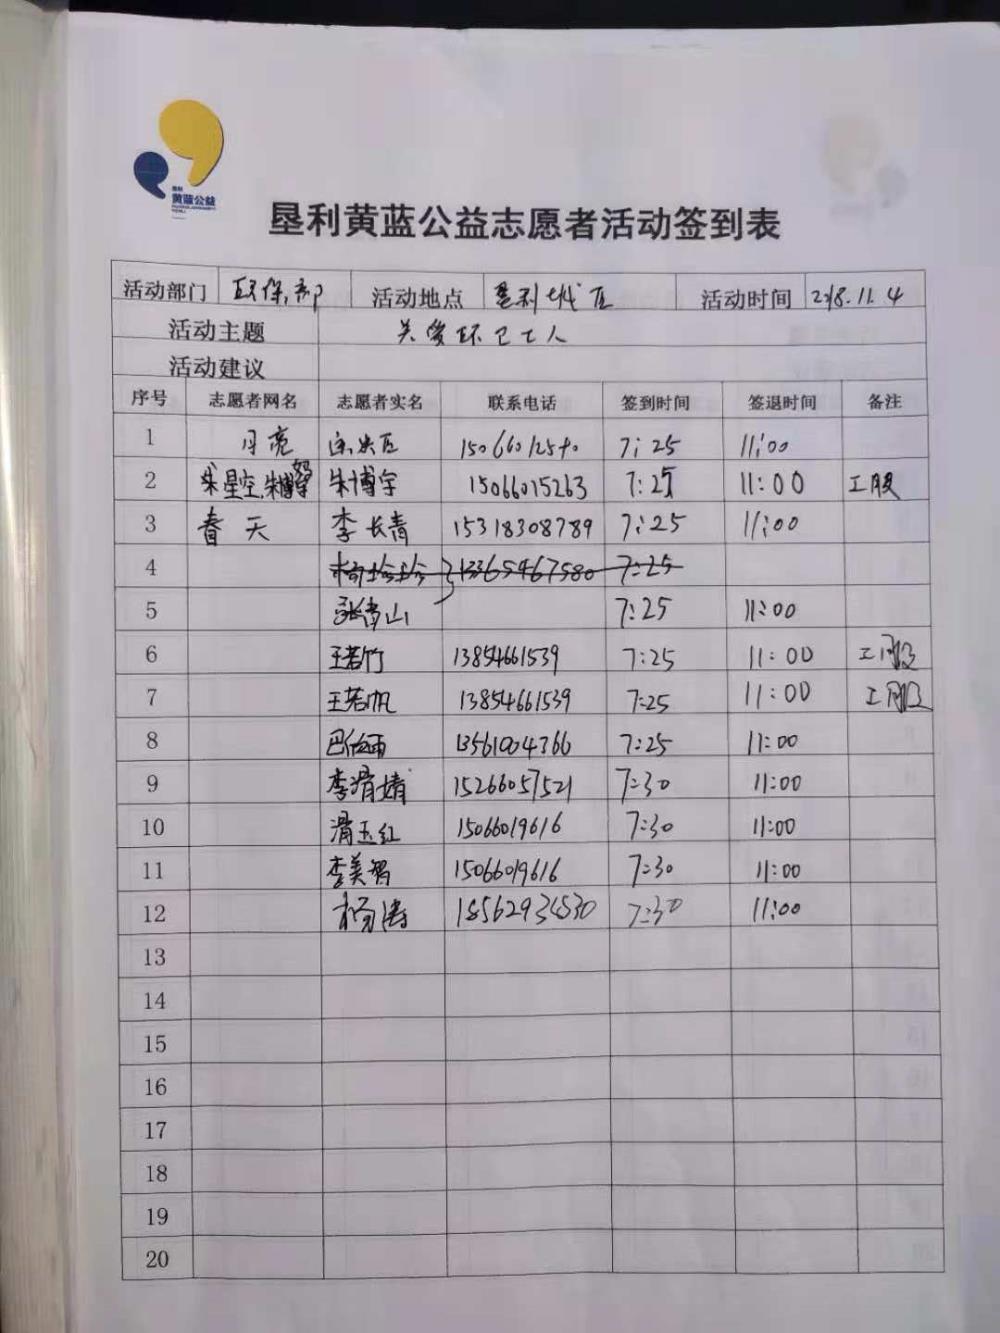 黄蓝公益
垦利黄蓝公益志愿者活动签到表
活动部门 环保部 活动地点 垦利城区 活动时间 2018.11.4
活动主题 关爱环卫工人
活动建议
序号 志愿者网名 志愿者实名 联系电话 签到时间 签退时间 备注
1 月亮 7:25 11:00
2 朱博宇 15066015263 7:25 11:00 工服
3 春天 李长青 15318308789 7:25 11:00
4 13365467580 7:25
5 张青山 7:25 11:00
6 王若竹 13854661539 7:25 11:00 工服
7 王若帆 13854661539 7:25 11:00 工服
8 13561004366 7:25 11:00
9 李滑婧 15266057521 7:30 11:00
10 滑玉红 15066019616 7:30 11:00
11 李美智 15066019616 7:30 11:00
12 杨涛 18562934530 7:30 11:00
13
14
15
16
17
18
19
20